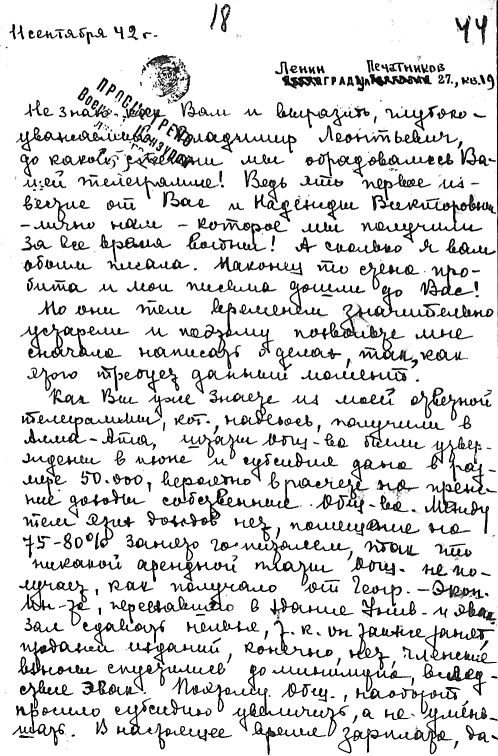 18
44
11 сентября 42 г.
Ленин Печатников
град ул 27, кв. 19
ПРОСМОТРЕНО
Военной Цензурой
Не знаю как Вам и выразить, глубоко-
уважаемый Владимир Леонтьевич,
до какой степени мы обрадовались Ва-
шей телеграмме! Ведь это первое из-
вестие от Вас и Надежды Викторовны
– лично нам – которое мы получили
за все время войны! А сколько я вам
обоим писала. Наконец то стена про-
бита и мои письма дошли до Вас!
Но они тем временем значительно
устарели и поэтому позвольте мне
сначала написать о делах, так, как
этого требует данный момент.
Как Вы уже знаете из моей ответной
телеграммы, кот., надеюсь, получили в
Алма-Ата, штаты Общ-ва были утвер-
ждены в июне и субсидия дана в раз-
мере 50.000, вероятно в расчете на преж-
ние доходы собственные Общ-ва. Между
тем этих доходов нет, помещение на
75-80% занято госпиталем, так что
никакой арендной платы Общ. не по-
лучает, как получало от Геогр.-Экон.
Ин-та, переехавшего в здание Унив. и эвак.
Зал сдавать нельзя, т.к. он также занят,
продажи изданий, конечно, нет, членские
взносы спустились до минимума, вслед-
ствие эвак. Поэтому Общ., наоборот
просило субсидию увеличить, а не умень-
шать. В настоящее время зарплата, да-